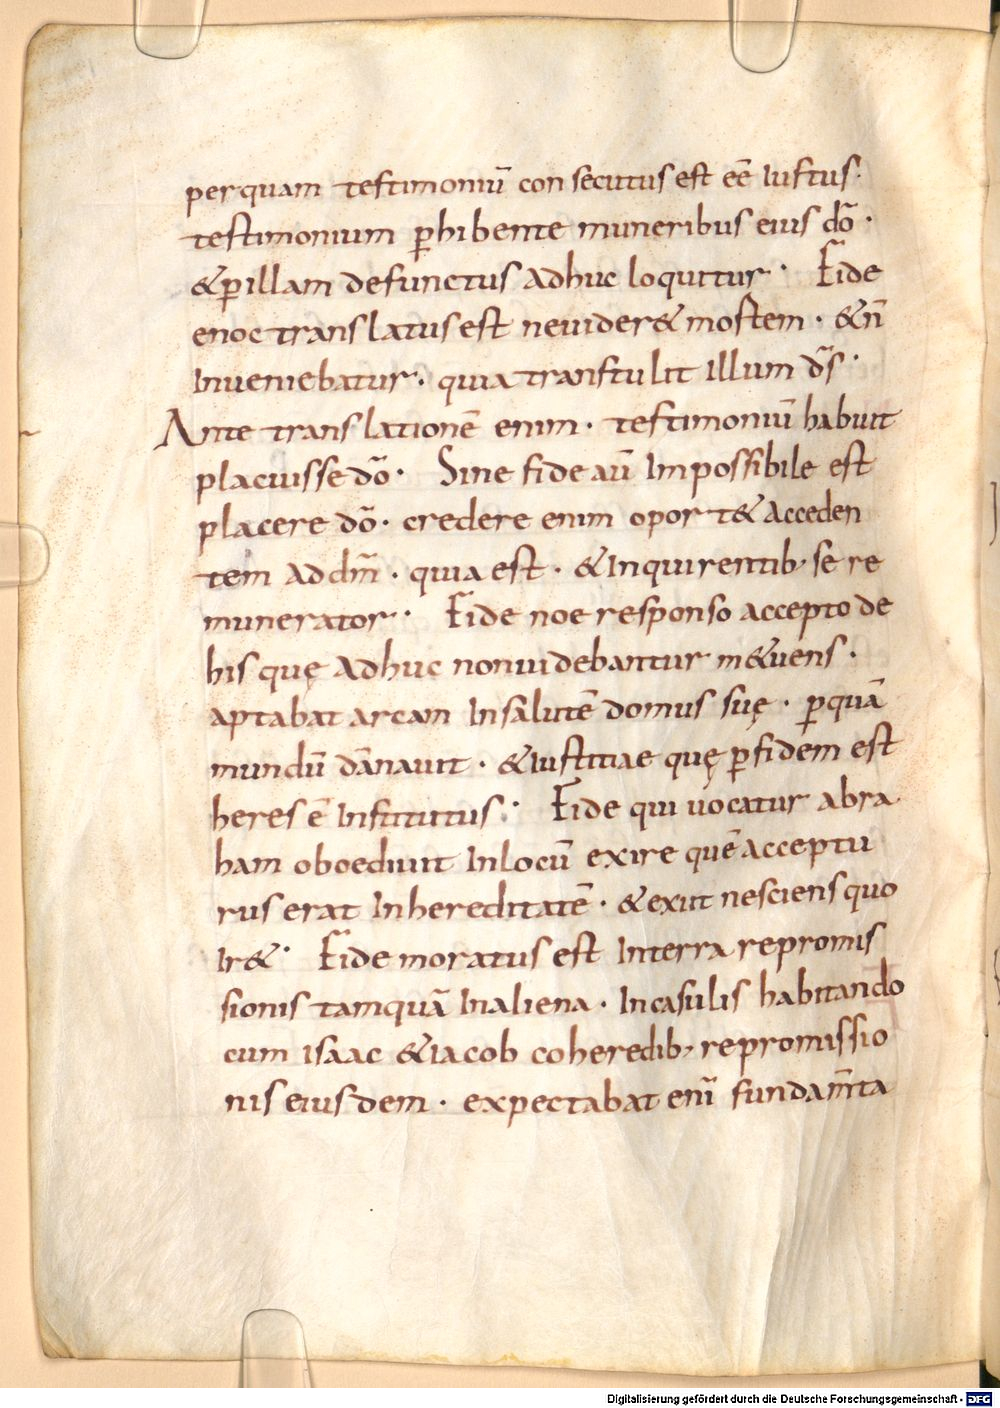 per quam testimoniū consecutus est eē Iustus·
testimonium ꝑhibente muneribus eius dō·
& ꝑ illam defunctus adhuc loquitur· Fide
enoc translatus est ne uider& mostem· & n̄
Inueniebatur· quia transtulit Illum d̄s·
Ante translationē enim· testimoniū habuit
placuisse dō· Sine fide aū Impossibile est
placere dō· credere enim oport& acceden
tem ad dm̄· quia est· & Inquirentib; se re
munerator· Fide noe responso accepto de
his quę adhuc non uidebantur m&uens·
aptabat arcam In salutē domus suę· ꝑ quā
mundū dānauit· & iustitiae quę ꝑ fidem est
heres ē Institutus· Fide qui uocatur abra
ham oboediuit In locū exire quē acceptu
rus erat In hereditatē· & exiit nesciens quo
Ir&· Fide moratus est In terra repromis
sionis tamquā In aliena· In casulis habitando
cum isaac & iacob coheredib; repromissio
nis eiusdem· expectabat enī fundam̄ta
Digitalisierung gefördert durch die Deutsche Forschungsgemeinschaft - DFG